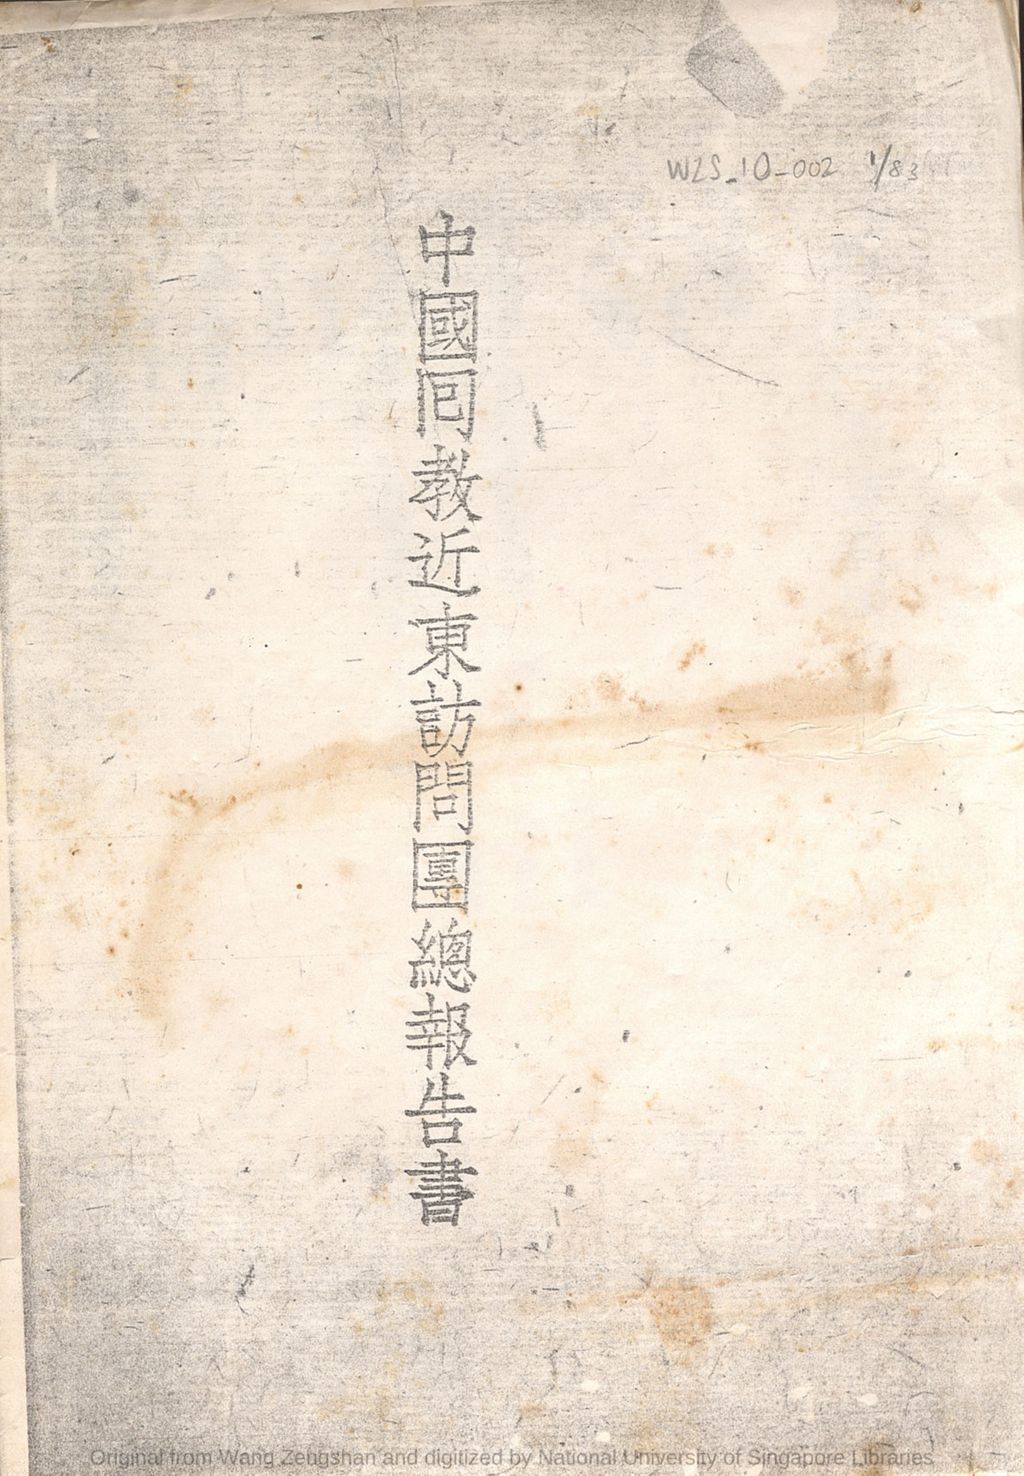 WZS_10-002 1/83
中國囘教近東訪問團總報告書
Original from Wang Zengshan and digitized by National University of Singapore Libraries